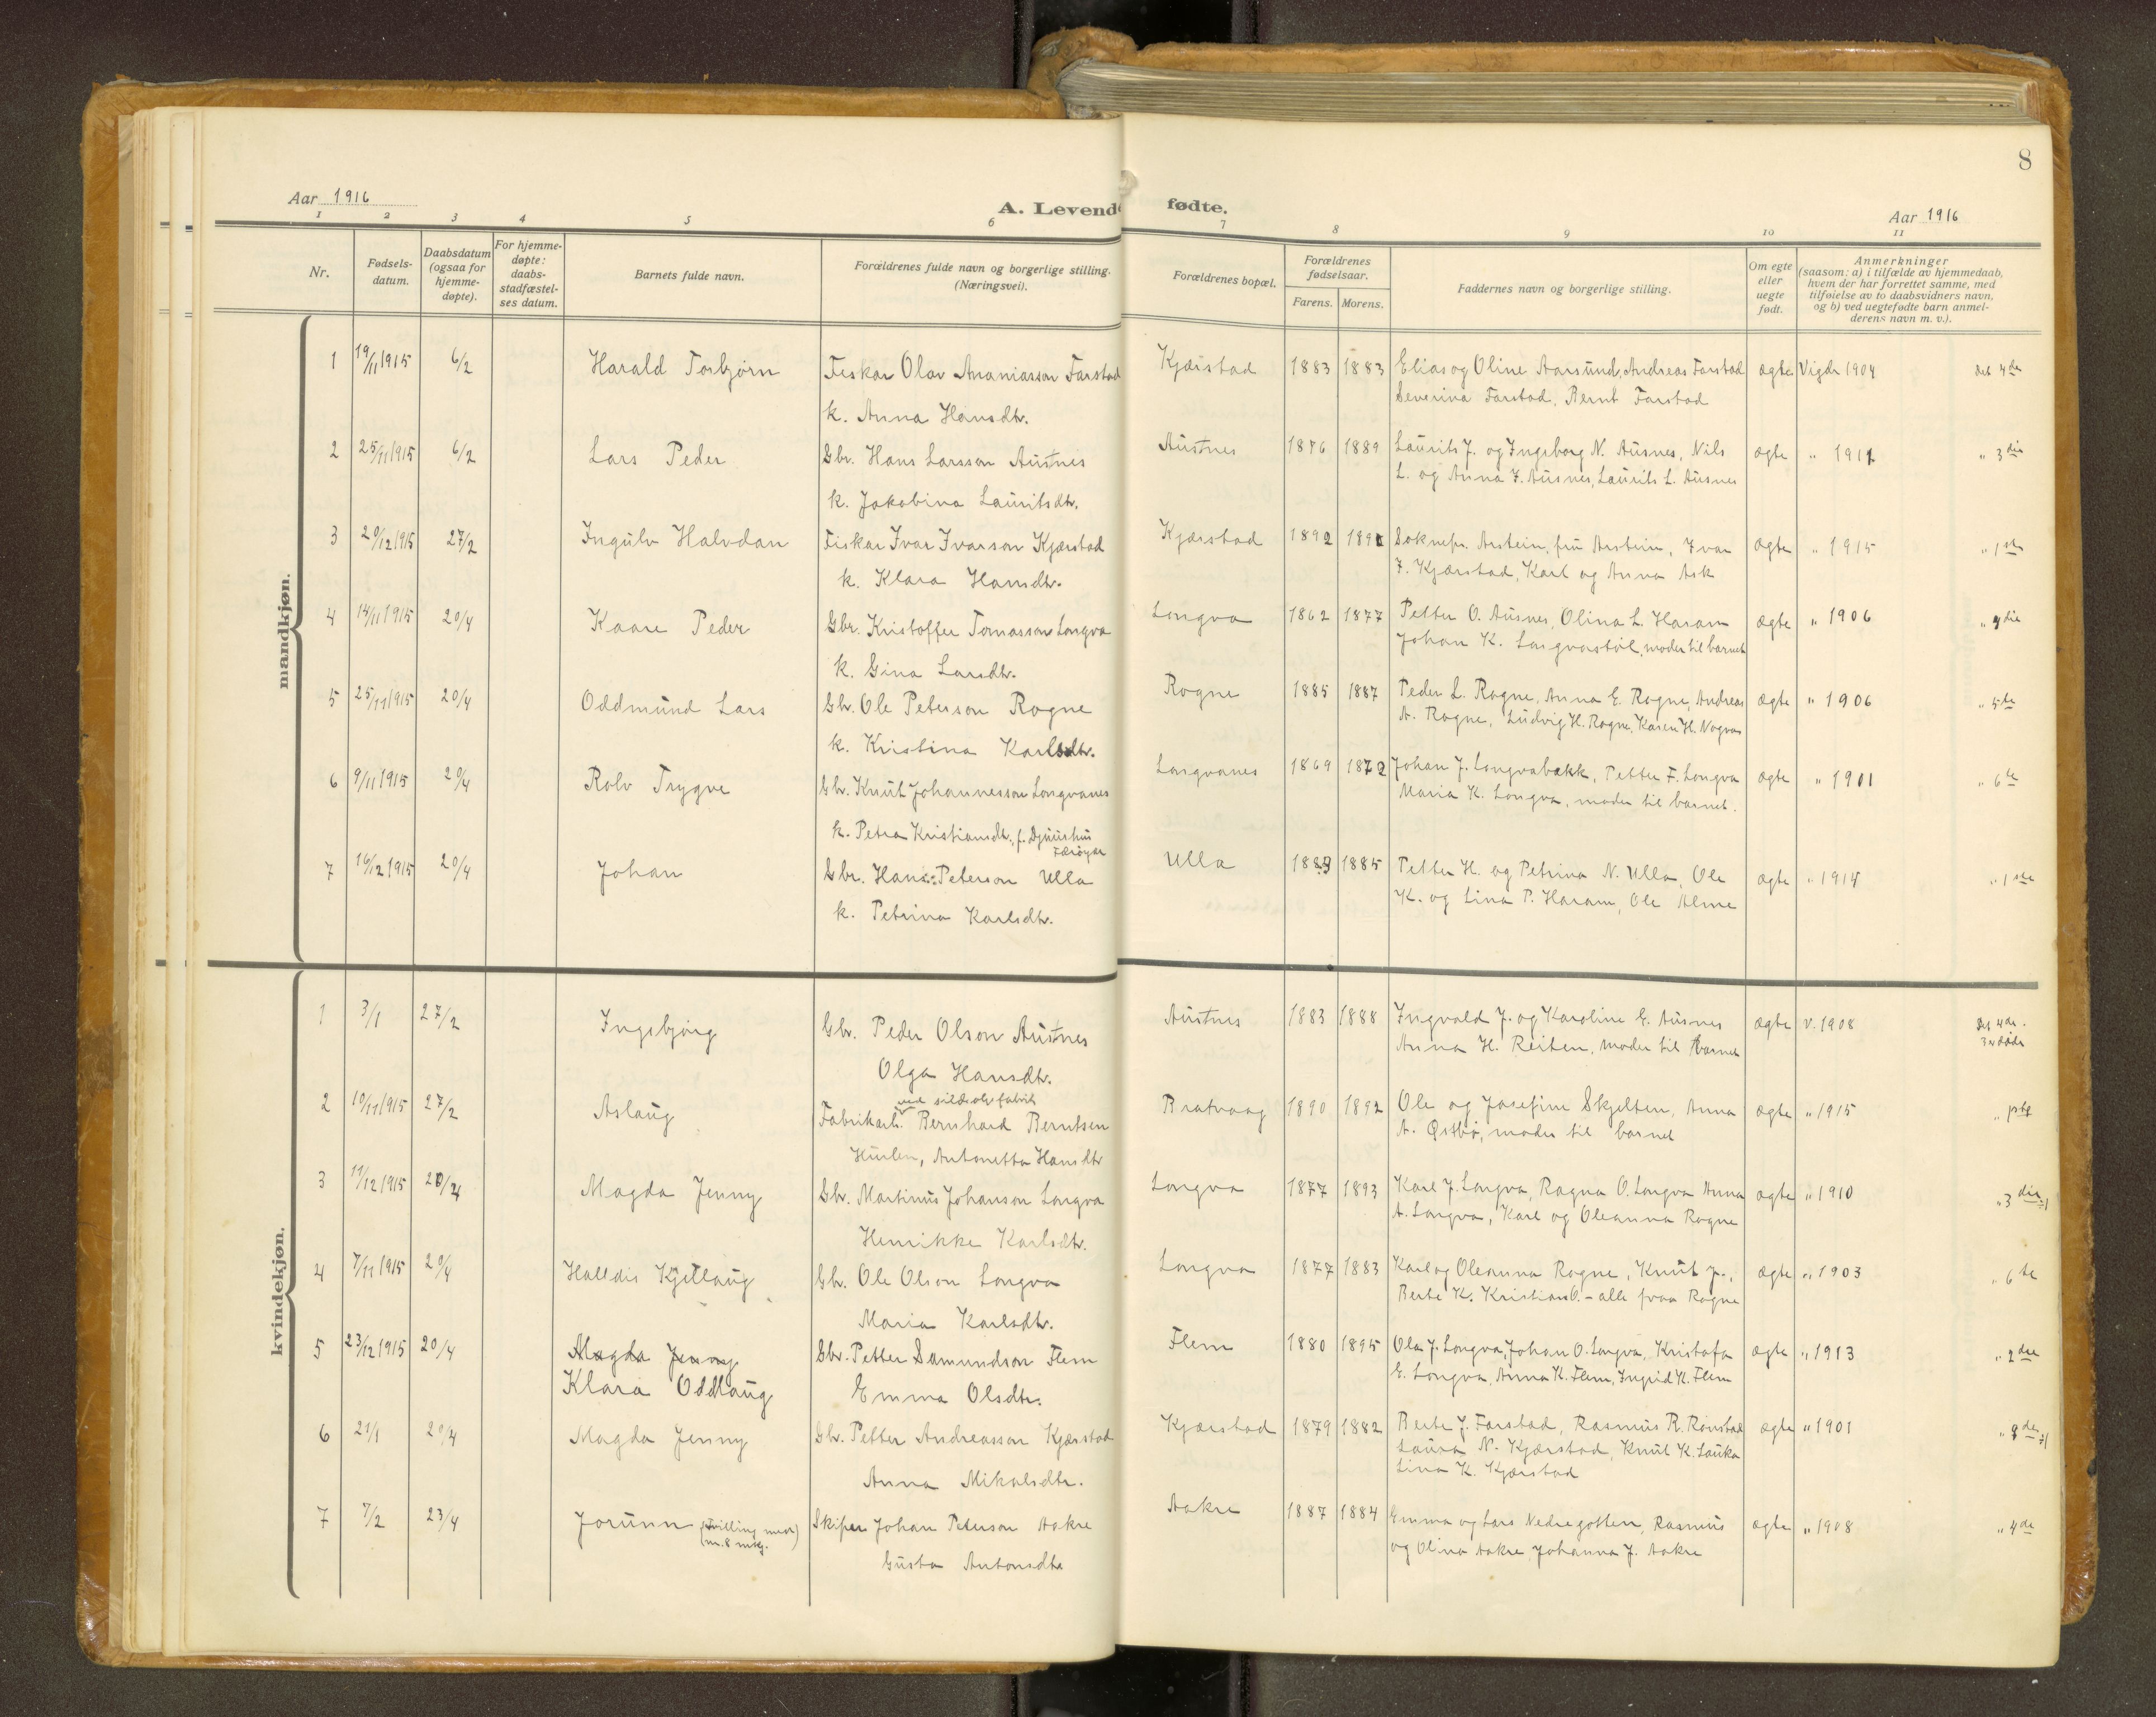 8
Aar 1916
A. Levende fødte.
Aar 1916
1 2 3 4 5 6 7 8 9 10 11
Nr. Fødselsdatum. Daabsdatum (ogsaa for hjemmedøpte). For hjemmedøpte: daabsstadfæstelses datum. Barnets fulde navn. Forældrenes fulde navn og borgerlige stilling. (Næringsvei). Forældrenes bopæl. Forældrenes fødselsaar. Farens. Morens. Faddernes navn og borgerlige stilling. Om egte eller uegte født. Anmerkninger (saasom: a) i tilfælde av hjemmedaab, hvem der har forrettet samme, med tilføielse av to daabsvidners navn, og b) ved uegtefødte barn anmelderens navn m. v.).
mandkjøn.
1 19/11 1915 6/2 Harald Torbjørn Fiskar Olav Ananiasson Farstad Kjærstad 1883 1883 Elias og Oline Aarsund, Andreas Farstad ægte Vigde 1904 det 4de
k. Anna Hansdtr. Severina Farstad, Bernt Farstad
2 25/11 1915 6/2 Lars Peder Gbr. Hans Larsson Austnes Austnes 1876 1889 Laurits J. og Ingeborg N. Ausnes, Nils ægte " 1911 " 3die
k. Jakobina Lauritsdtr. L. og Anna J. Ausnes, Laurits L. Ausnes
3 20/12 1915 27/2 Ingulv Halvdan Fiskar Ivar Ivarson Kjærstad Kjærstad 1892 1891 Soknepr. Arstein, fru Arstein, Ivar ægte " 1915 " 1ste
k. Klara Hansdtr. I. Kjærstad, Karl og Anna Ask
4 14/11 1915 20/4 Kaare Peder Gbr. Kristoffer Tomasson Longva Longva 1862 1877 Petter O. Ausnes, Olina L. Haram ægte " 1906
k. Gina Larsdtr. Johan K. Longvastøl, moder til barnet
5 25/11 1915 20/4 Oddmund Lars Gbr. Ole Peterson Rogne Rogne 1885 1887 Peder L. Rogne, Anna E. Rogne, Andreas ægte " 1906 " 5te
k. Kristina Karlsdtr. A. Rogne, Ludvig H. Rogne, Karen H. Nogvas
6 9/11 1915 20/4 Rolv Trygve Gbr. Knut Johannesson Longvanes Longvanes 1869 1872 Johan J. Longvabakk, Petter F. Longva ægte " 1901 " 6te
k. Petra Kristiansdtr., f. Djuushus Færøyar Maria K. Longva, moder til barnet.
7 16/12 1915 20/4 Johan Gbr. Hans Peterson Ulla Ulla 1889 1885 Petter H. og Petrina N. Ulla, Ole ægte " 1914 " 1ste
k. Petrina Karlsdtr. K. og Lina P. Haram, Ole Alme
kvindekjøn.
1 3/1 27/2 Ingebjørg Gbr. Peder Olson Austnes Austnes 1883 1888 Ingvald J. og Karoline E. Ausnes ægte V. 1908 Det 4de.
Olga Hansdtr. Anna H. Reiten, moder til barnet 3 er døde
2 10/11 1915 27/2 Aslaug Fabrikarb. ved sildeolefabrik Bernhard Berntsen Bratvaag 1890 1892 Ole og Josefine Skjelten, Anna ægte " 1915
Hurlen, Antonetta Hansdtr A. Østbø, moder til barnet
3 11/12 1915 20/4 Magda Jenny Gbr. Martinus Johanson Longva Longva 1877 1893 Karl J. Longva, Ragna O. Longva Anna ægte " 1910 " 3die
Henrikke Karlsdtr. A. Longva, Karl og Oleanna Rogne
4 7/11 1915 20/4 Halldis Kjellaug Gbr. Ole Olson Longva Longva 1877 1883 Karl og Oleanna Rogne, Knut J., ægte " 1903 " 6te
Maria Karlsdtr. Berte K. Kristian O. - alle fraa Rogne
5 23/12 1915 20/4 Magda Jenny Gbr. Petter Samundson Flem Flem 1880 1895 Ola J. Longva, Johan O. Longva, Kristofa ægte " 1913 " 2die
Klara Oddlaug Emma Olsdtr. E. Longva, Anna K. Flem, Ingrid K. Flem
6 21/1 20/4 Magda Jenny Gbr. Petter Andreasson Kjærstad Kjærstad 1879 1882 Berte J. Farstad, Rasmus R. Rønstad ægte " 1901
Anna Mikalsdtr. Laura N. Kjærstad, Knut K. Lauka
Lina K. Kjærstad
7 7/2 23/4 Jorunn (tvilling med n. 8 mkj.) Skiper Johan Peterson Aakre Aakre 1887 1884 Emma og Lars Nedregotten, Rasmus ægte " 1908 " 4de
Gusta Antonsdtr og Olina Aakre Johanna J. Aakre